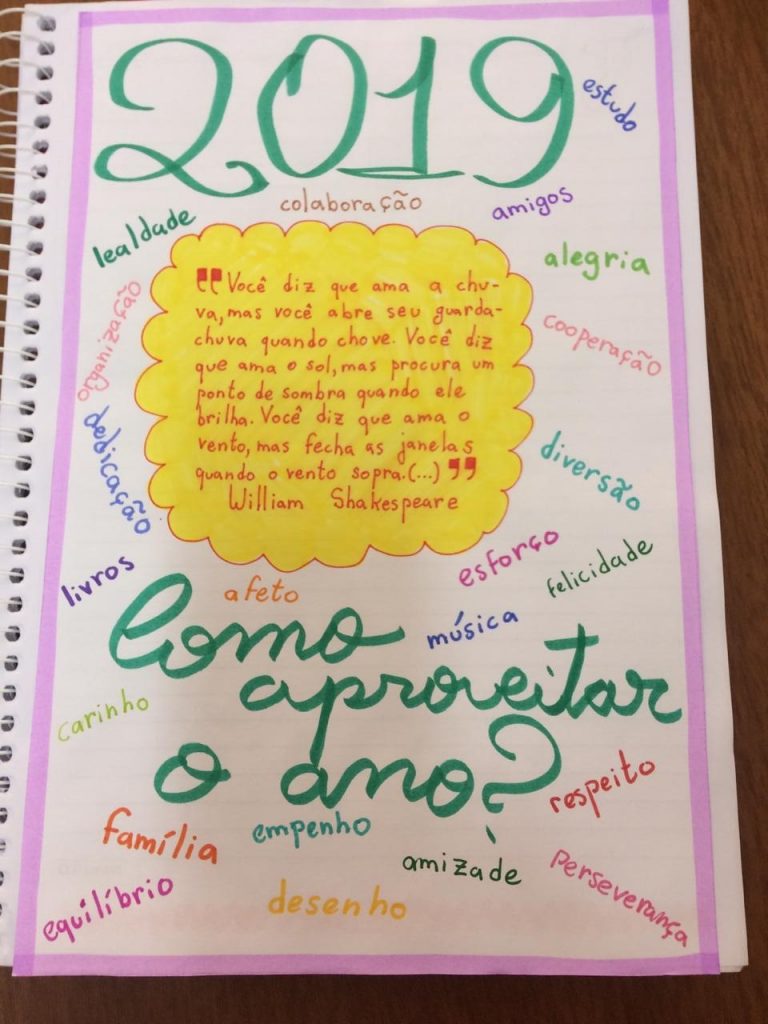 2019
estudo
colaboração
amigos
lealdade
alegria
organização
cooperação
"Você diz que ama a chu-
va, mas você abre seu guarda-
chuva quando chove. Você diz
que ama o sol, mas procura um
ponto de sombra quando ele
brilha. Você diz que ama o
vento, mas fecha as janelas
quando o vento sopra.(...)"
William Shakespeare
dedicação
diversão
livros
afeto
esforço
felicidade
música
Como
aproveitar
o ano?
carinho
respeito
família
empenho
amizade
perseverança
equilíbrio
desenho